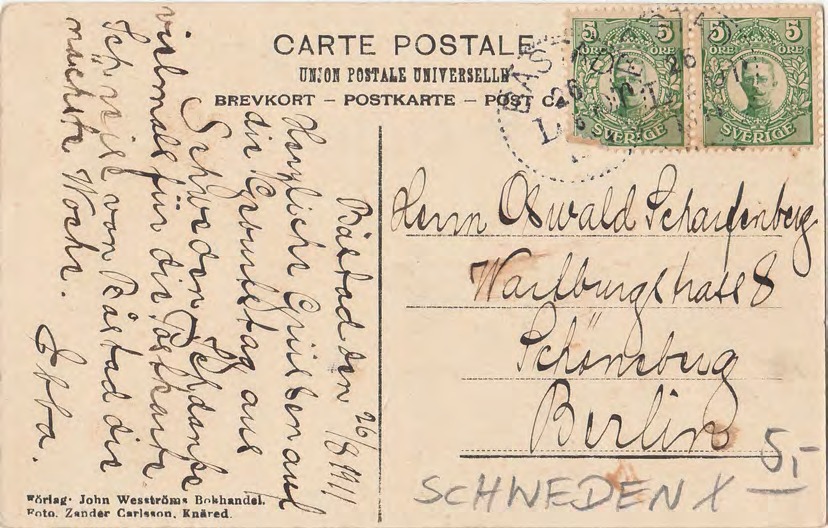 CARTE POSTALE
UNION POSTALE UNIVERSELLE
BREVKORT – POSTKARTE – POST CA
5 ÖRE 5 ÖRE
SVERIGE
5 ÖRE 5 ÖRE
SVERIGE
BÅSTAD
26
Båstad den 26/8 1911
Herzliche Grüße auf
die Geburtstag aus
Schweden. Ich danke
vielmals für die Postkarte
Ich reise von Båstad die
nächste Woche. Ebba.
Herrn Oswald Scharfenberg
Wartburgstrasse 8
Schöneberg
Berlin
SCHWEDEN X 5,-
Förlag: John Wesströms Bokhandel.
Foto. Zander Carlsson, Knäred.